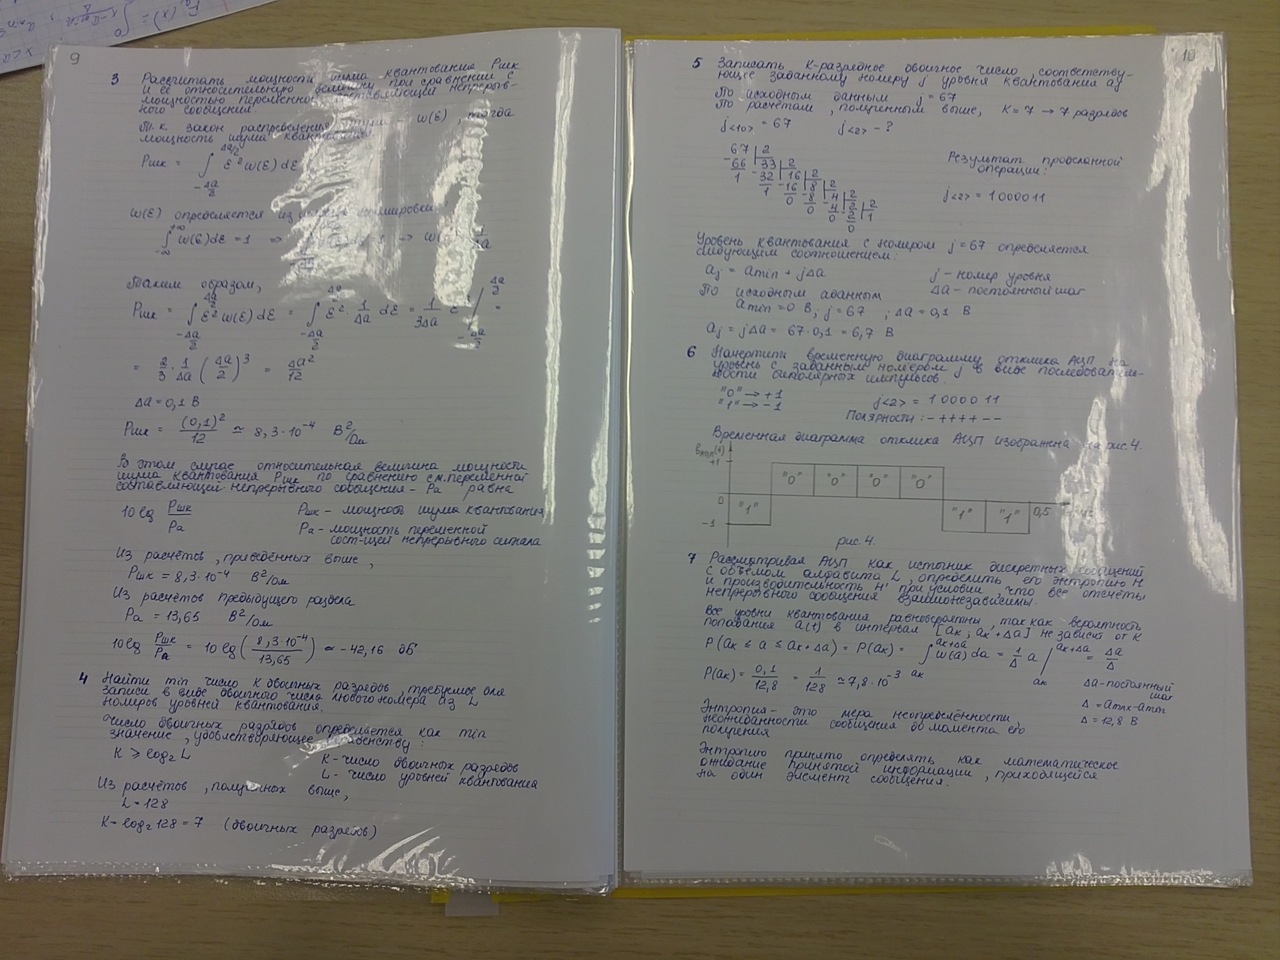 9
3 Рассчитать мощность шума квантования Ршк
и её относительную величину при сравнении с
мощностью переменной составляющей непрерыв-
ного сообщения.
Т.к. закон распределения шума - w(ε), тогда
мощность шума квантования
Ршк = ∫ ε² w(ε) dε
w(ε) определяется из нормировки
∫ w(ε)dε = 1 ⇒
Таким образом,
Ршк = ∫ ε² w(ε) dε = ∫ ε² · 1/Δa dε = 1/3Δa ε³ | =
= 2/3 · 1/Δa (Δa/2)³ = Δa²/12
Δa = 0,1 В
Ршк = (0,1)²/12 ≃ 8,3·10⁻⁴ В²/Ом
В этом случае относительная величина мощности
шума квантования Ршк по сравнению с м.переменной
составляющей непрерывного сообщения - Pa равна
10 lg Ршк/Pa Ршк - мощность шума квантования
Pa - мощность переменной
сост-щей непрерывного сигнала
Из расчётов, приведённых выше,
Ршк = 8,3·10⁻⁴ В²/Ом
Из расчётов предыдущего раздела
Pa = 13,65 В²/Ом
10 lg Ршк/Pa = 10 lg (8,3·10⁻⁴/13,65) ≃ -42,16 дБ
4 Найти min число K двоичных разрядов, требуемое для
записи в виде двоичного числа любого номера из L
номеров уровней квантования.
Число двоичных разрядов определяется как min
значение, удовлетворяющее неравенству:
K ⩾ log₂ L K - число двоичных разрядов
L - число уровней квантования
Из расчётов, полученных выше,
L = 128
K = log₂ 128 = 7 (двоичных разрядов)
10
5 Записать K-разрядное двоичное число, соответству-
ющее заданному номеру j уровня квантования aj
По исходным данным j = 67
По расчётам, полученным выше, K = 7 → 7 разрядов
j<10> = 67 j<2> - ?
67 | 2
-66 33 | 2
1 -32 16 | 2
1 -16 8 | 2
0 -8 4 | 2
0 -4 2 | 2
0 2 1
0
Результат проделанной
операции:
j<2> = 1000011
Уровень квантования с номером j = 67 определяется
следующим соотношением:
aj = amin + jΔa j - номер уровня
По исходным данным Δa - постоянный шаг
amin = 0 В; j = 67 ; Δa = 0,1 В
aj = jΔa = 67·0,1 = 6,7 В
6 Начертить временную диаграмму отклика АЦП на
уровень с заданным номером j в виде последователь-
ности биполярных импульсов.
"0" → +1 j<2> = 1000011
"1" → -1 Полярности: - + + + + - -
Временная диаграмма отклика АЦП изображена на рис.4.
+1
"0" "0" "0" "0"
0
"1" "1" "1" 0,5
-1
рис.4.
7 Рассматривая АЦП как источник дискретных сообщений
с объёмом алфавита L, определить его энтропию H
и производительность H' при условии, что все отсчёты
непрерывного сообщения взаимонезависимы.
Все уровни квантования равновероятны, так как вероятность
попадания a(t) в интервал [aк; aк+Δa] не зависит от K
P(aк ⩽ a ⩽ aк+Δa) = P(aк) = ∫ w(a) da = 1/Δ a | = Δa/Δ
P(aк) = 0,1/12,8 = 1/128 ≃ 7,8·10⁻³ Δa - постоянный
шаг
Δ = amax - amin
Δ = 12,8 В
Энтропия - это мера неопределённости,
неожиданности сообщения до момента его
получения
Энтропию принято определять как математическое
ожидание принятой информации, приходящейся
на один элемент сообщения.